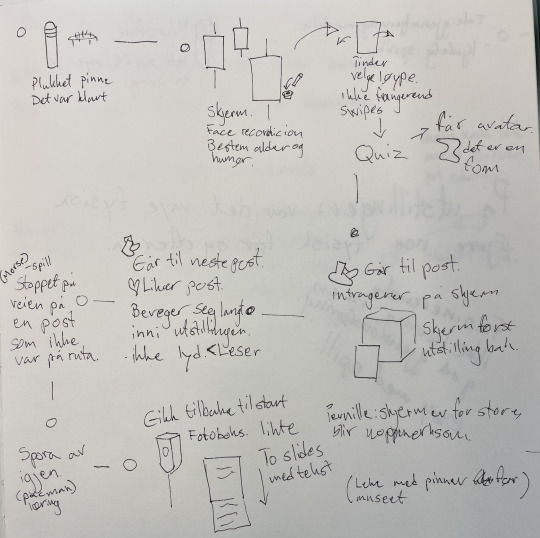 Plukket pinne
Det var klart
Skjerm.
Face recordicion
Bestem alder og
humør.
Tinder
velge løype.
ikke fungerend
swipes
Quiz
får avatar.
det er en
form
(Morse)-spill
Stoppet på
veien på
en post
som ikke
var på ruta.
Går til neste post.
Liker post.
Beveger seg
inni utstillingen.
ikke lyd. < Leser
Går til post.
intragerer på skjerm
Skjerm først
utstilling bak.
Spora av
igjen.
(pacman)
Gikk tilbake til start
Fotoboks. likte
To slides
med tekst
Pernille: skjermer for store,
blir uoppmerksom.
(Leke med pinner
museet)